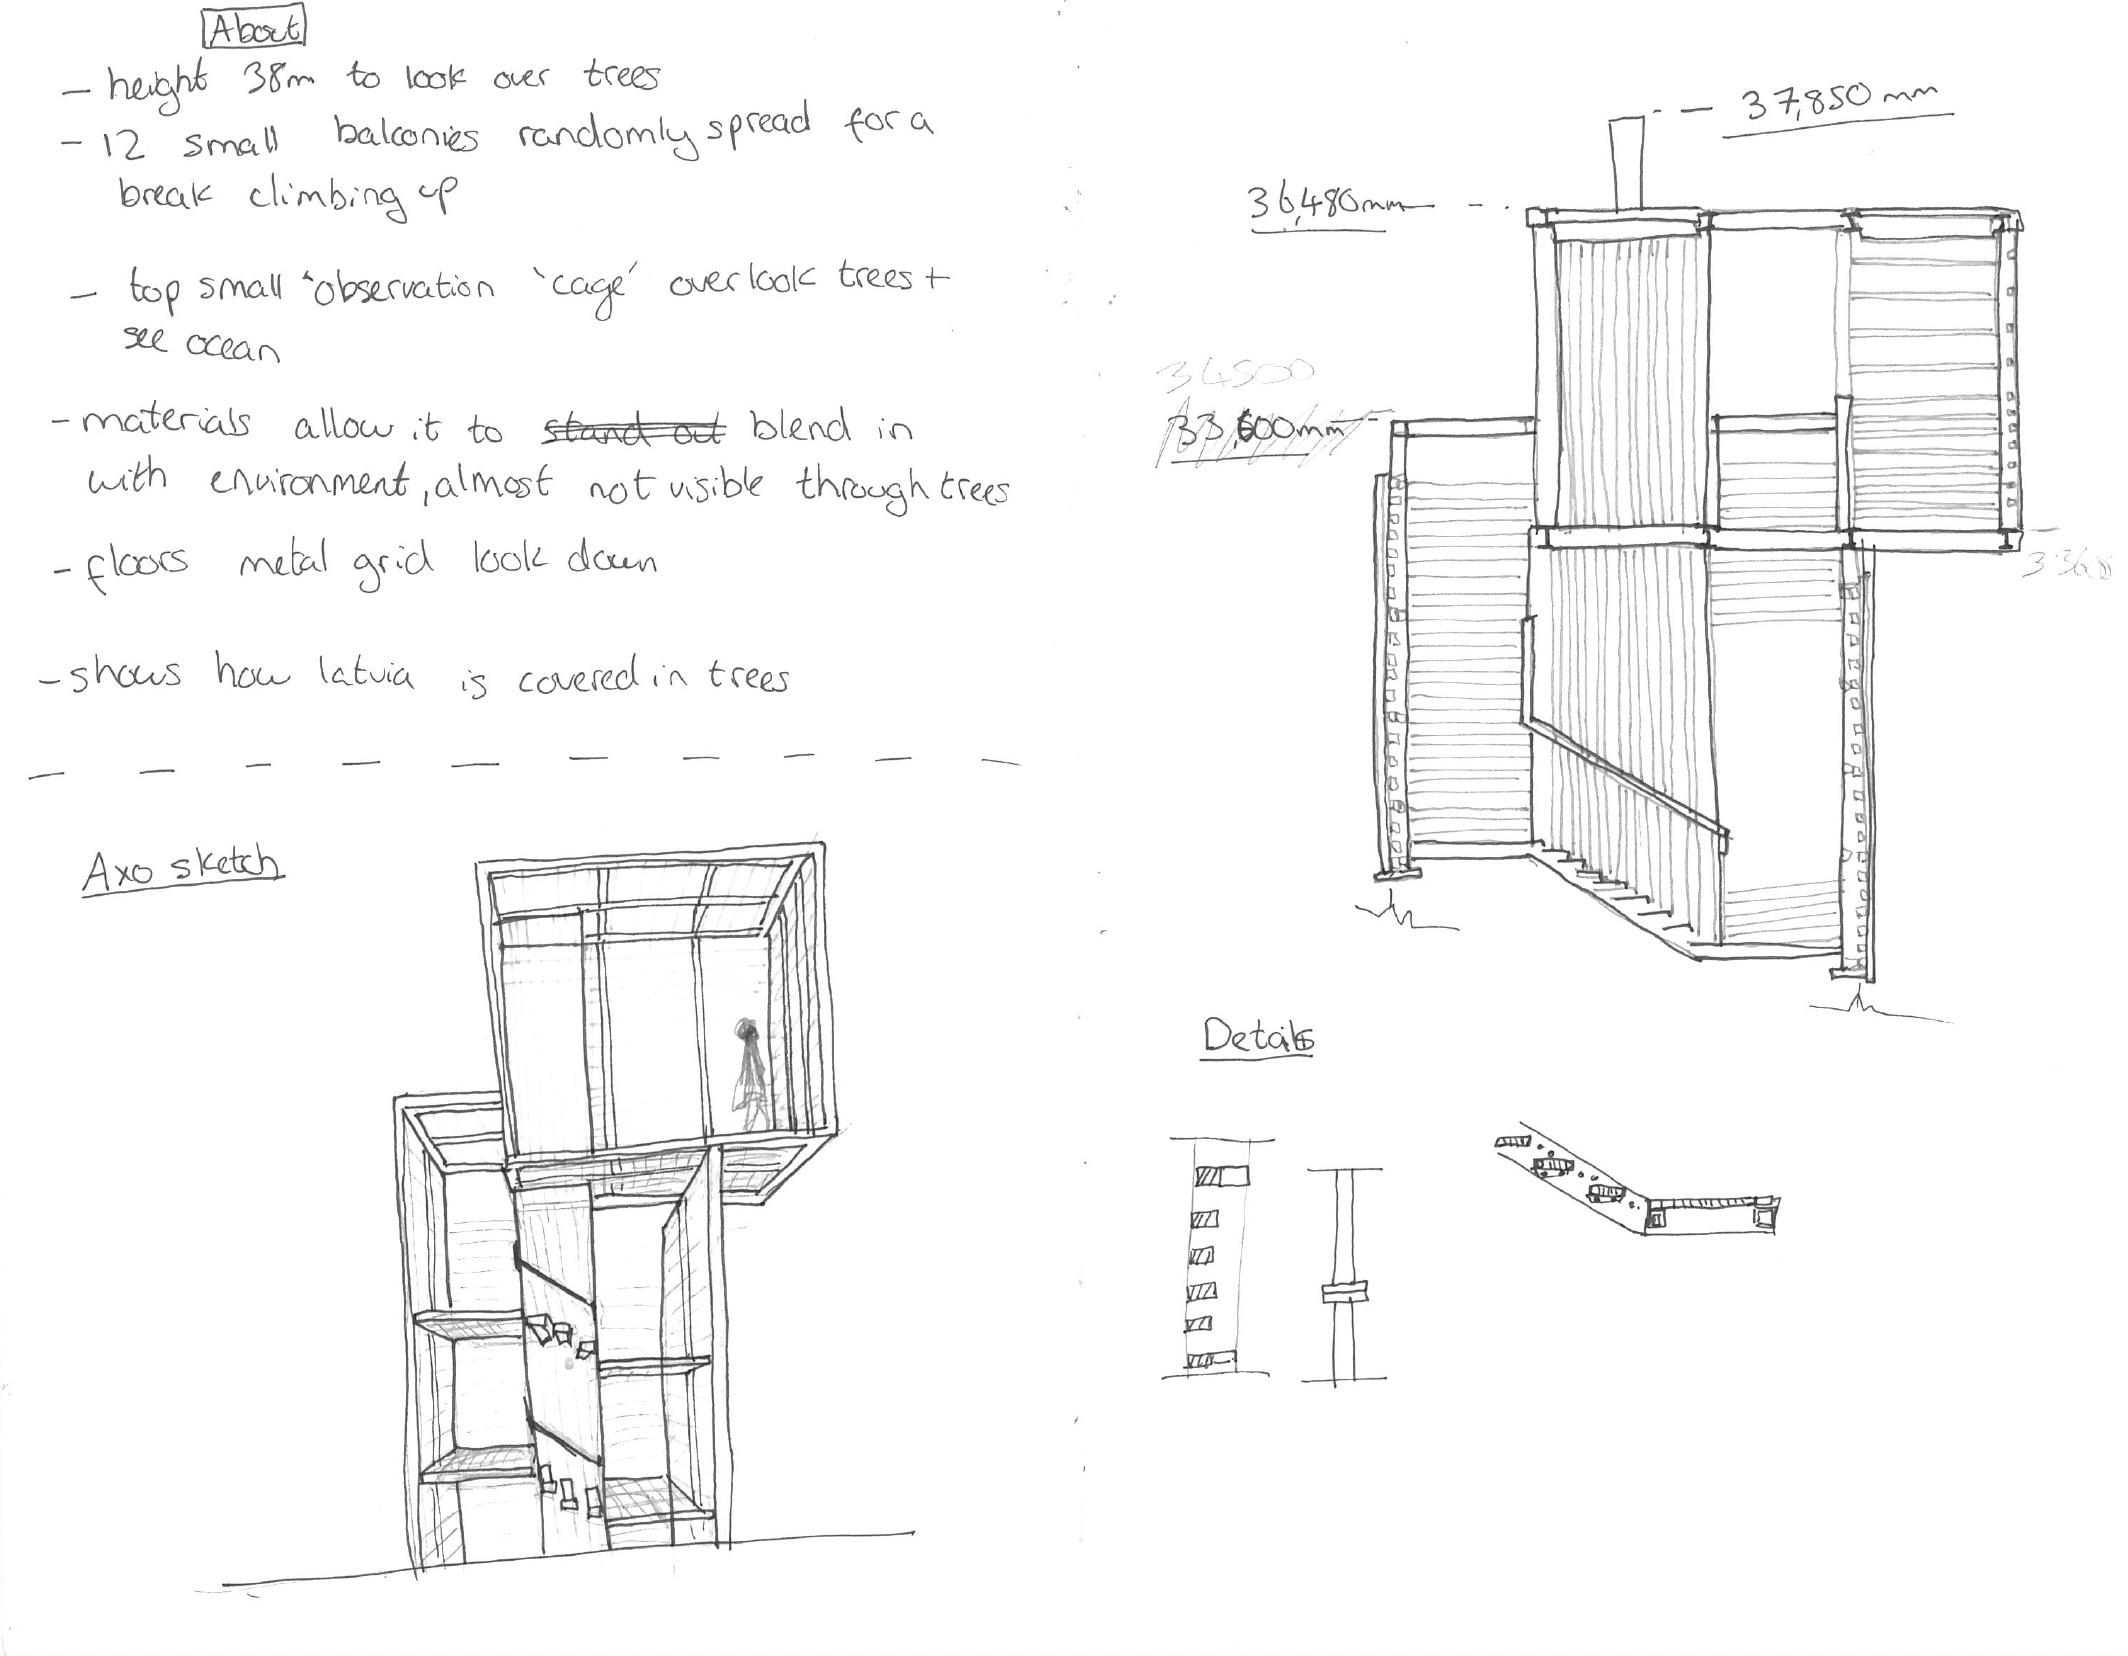 About
- height 38m to look over trees
- 12 small balconies randomly spread for a
break climbing up
- top small 'observation 'cage' overlook trees +
see ocean
- materials allow it to stand out blend in
with environment, almost not visible through trees
- floors metal grid look down
- shows how latvia is covered in trees
Axo sketch
37,850mm
36,480mm
34500
33,600mm
Details